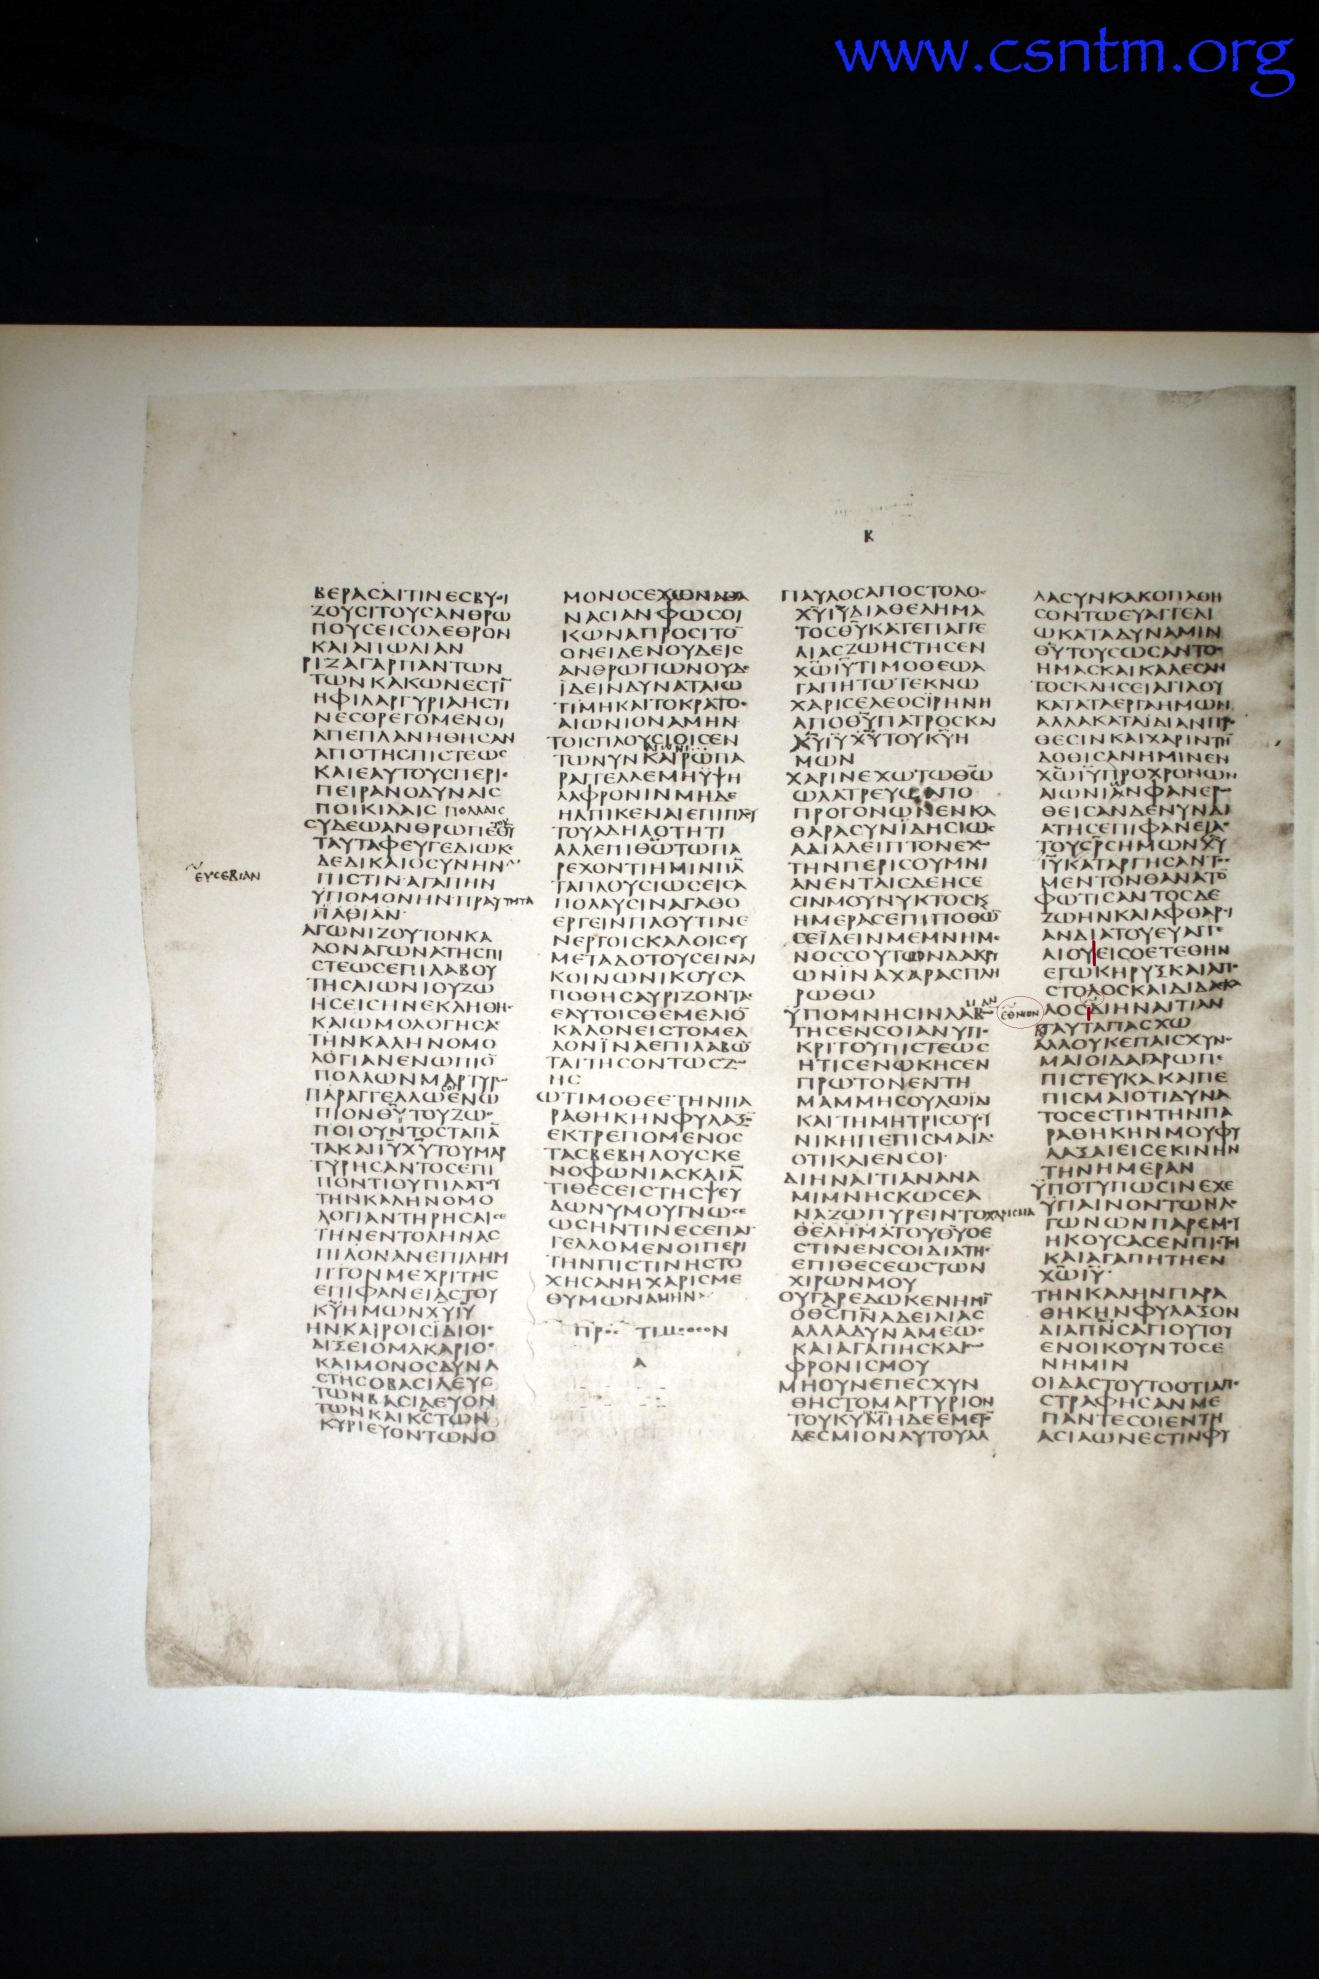 www.csntm.org
κ
ΒΕΡΑСΑΙΤΙΝΕСΒΥΘΙ
ΖΟΥСΙΤΟΥСΑΝΘΡΩ
ΠΟΥСΕΙСΟΛΕΘΡΟΝ
ΚΑΙΑΠΩΛΙΑΝ
ΡΙΖΑΓΑΡΠΑΝΤΩΝ
ΤΩΝΚΑΚΩΝΕСΤΙ̅
ΗΦΙΛΑΡΓΥΡΙΑΗСΤΙ
ΝΕСΟΡΕΓΟΜΕΝΟΙ
ΑΠΕΠΛΑΝΗΘΗСΑΝ
ΑΠΟΤΗСΠΙСΤΕΩС
ΚΑΙΕΑΥΤΟΥСΠΕΡΙΕ
ΠΕΙΡΑΝΟΔΥΝΑΙС
ΠΟΙΚΙΛΑΙС ΠΟΛΛΑΙС
СΥΔΕΩΑΝΘΡΩΠΕΘΥ
ΤΑΥΤΑΦΕΥΓΕΔΙΩΚΕ
ΔΕΔΙΚΑΙΟСΥΝΗΝ
ΕΥСΕΒΙΑΝ
ΠΙСΤΙΝΑΓΑΠΗΝ
ΥΠΟΜΟΝΗΝΠΡΑΥΤΗΤΑ
ΠΑΘΙΑΝ
ΑΓΩΝΙΖΟΥΤΟΝΚΑ
ΛΟΝΑΓΩΝΑΤΗСΠΙ
СΤΕΩСΕΠΙΛΑΒΟΥ
ΤΗСΑΙΩΝΙΟΥΖΩ
ΗСΕΙСΗΝΕΚΛΗΘΗС
ΚΑΙΩΜΟΛΟΓΗСΑС
ΤΗΝΚΑΛΗΝΟΜΟ
ΛΟΓΙΑΝΕΝΩΠΙΟ̅
ΠΟΛΛΩΝΜΑΡΤΥΡΩ̅
ΠΑΡΑΓΓΕΛΛΩСΟΙΕΝΩ
ΠΙΟΝΘΥΤΟΥΖΩΟ
ΠΟΙΟΥΝΤΟСΤΑΠΑ̅
ΤΑΚΑΙΙΥΧΥΤΟΥΜΑΡ
ΤΥΡΗСΑΝΤΟСΕΠΙ
ΠΟΝΤΙΟΥΠΙΛΑΤΥ
ΤΗΝΚΑΛΗΝΟΜΟ
ΛΟΓΙΑΝΤΗΡΗСΑΙСΕ
ΤΗΝΕΝΤΟΛΗΝΑС
ΠΙΛΟΝΑΝΕΠΙΛΗΜ
ΠΤΟΝΜΕΧΡΙΤΗС
ΕΠΙΦΑΝΕΙΑСΤΟΥ
ΚΥΗΜΩΝΧΥΙΥ
ΗΝΚΑΙΡΟΙСΪΔΙΟΙС
ΔΙΞΕΙΟΜΑΚΑΡΙΟС
ΚΑΙΜΟΝΟСΔΥΝΑ
СΤΗСΟΒΑСΙΛΕΥС
ΤΩΝΒΑСΙΛΕΥΟΝ
ΤΩΝΚΑΙΚСΤΩΝ
ΚΥΡΙΕΥΟΝΤΩΝΟ
ΜΟΝΟСΕΧΩΝΑΘΑ
ΝΑСΙΑΝΦΩСΟΙ
ΚΩΝΑΠΡΟСΙΤΟ̅
ΟΝΕΙΔΕΝΟΥΔΕΙС
ΑΝΘΡΩΠΩΝΟΥΔΕ
ΪΔΕΙΝΔΥΝΑΤΑΙΩ
ΤΙΜΗΚΑΙΤΟΚΡΑΤΟС
ΑΙΩΝΙΟΝΑΜΗΝ
ΤΟΙСΠΛΟΥСΙΟΙСΕΝ
ΤΩΝΥΝΚΑΙΡΩΠΑ
ΡΑΓΓΕΛΛΕΜΗΥΨΗ
ΛΑΦΡΟΝΙΝΜΗΔΕ
ΗΛΠΙΚΕΝΑΙΕΠΙΠΛΟΥ
ΤΟΥΑΔΗΛΟΤΗΤΙ
ΑΛΛΕΠΙΘΩΤΩΠΑ
ΡΕΧΟΝΤΙΗΜΙΝΠΑ̅
ΤΑΠΛΟΥСΙΩСΕΙСΑ
ΠΟΛΑΥСΙΝΑΓΑΘΟ
ΕΡΓΕΙΝΠΛΟΥΤΙΝΕ
ΝΕΡΓΟΙСΚΑΛΟΙСΕΥ
ΜΕΤΑΔΟΤΟΥСΕΙΝΑΙ
ΚΟΙΝΩΝΙΚΟΥСΑ
ΠΟΘΗСΑΥΡΙΖΟΝΤΑС
ΕΑΥΤΟΙСΘΕΜΕΛΙΟ̅
ΚΑΛΟΝΕΙСΤΟΜΕΛ
ΛΟΝΪΝΑΕΠΙΛΑΒΩ̅
ΤΑΙΤΗСΟΝΤΩСΖΩ
ΗС
ΩΤΙΜΟΘΕΕΤΗΝΠΑ
ΡΑΘΗΚΗΝΦΥΛΑΞΟ̅
ΕΚΤΡΕΠΟΜΕΝΟС
ΤΑСΒΕΒΗΛΟΥСΚΕ
ΝΟΦΩΝΙΑСΚΑΙΑ̅
ΤΙΘΕСΕΙСΤΗСΨΕΥ
ΔΩΝΥΜΟΥΓΝΩСΕ
ΩСΗΝΤΙΝΕСΕΠΑΓ
ΓΕΛΛΟΜΕΝΟΙΠΕΡΙ
ΤΗΝΠΙСΤΙΝΗСΤΟ
ΧΗСΑΝΗΧΑΡΙСΜΕ
ΘΥΜΩΝΑΜΗΝ
ΠΡΟС ΤΙΜΟΘΕΟΝ
Α
ΠΑΥΛΟСΑΠΟСΤΟΛΟС
ΧΥΙΥΔΙΑΘΕΛΗΜΑ
ΤΟСΘΥΚΑΤΕΠΑΓΓΕ
ΛΙΑСΖΩΗСΤΗСΕΝ
ΧΩΙΥΤΙΜΟΘΕΩΑ
ΓΑΠΗΤΩΤΕΚΝΩ
ΧΑΡΙСΕΛΕΟСΪΡΗΝΗ
ΑΠΟΘΥΠΑΤΡΟСΚΑΙ
ΧΥΙΥΤΟΥΚΥΗ
ΜΩΝ
ΧΑΡΙΝΕΧΩΤΩΘΩ
ΩΛΑΤΡΕΥΩΑΠΟ
ΠΡΟΓΟΝΩΝΕΝΚΑ
ΘΑΡΑСΥΝΪΔΗСΙΩС
ΑΔΙΑΛΕΙΠΤΟΝΕΧΩ
ΤΗΝΠΕΡΙСΟΥΜΝΙ
ΑΝΕΝΤΑΙСΔΕΗСΕ
СΙΝΜΟΥΝΥΚΤΟСΚ
ΗΜΕΡΑСΕΠΙΠΟΘΩ̅
СΕΪΔΕΙΝΜΕΜΝΗΜΕ
ΝΟССΟΥΤΩΝΔΑΚΡΥ
ΩΝΪΝΑΧΑΡΑСΠΛΗ
ΡΩΘΩ
ΥΠΟΜΝΗСΙΝΛΑΒΩ̅
ΤΗСΕΝСΟΙΑΝΥΠΟ
ΚΡΙΤΟΥΠΙСΤΕΩС
ΗΤΙСΕΝΩΚΗСΕΝ
ΠΡΩΤΟΝΕΝΤΗ
ΜΑΜΜΗСΟΥΛΩΪΔΙ
ΚΑΙΤΗΜΗΤΡΙСΟΥΕΥ
ΝΙΚΗΠΕΠΙСΜΑΙΔΕ
ΟΤΙΚΑΙΕΝСΟΙ
ΔΙΗΝΑΙΤΙΑΝΑΝΑ
ΜΙΜΝΗСΚΩСΕΑ
ΝΑΖΩΠΥΡΕΙΝΤΟΧΑΡΙСΜΑ
ΘΕΛΗΜΑΤΟΥΘΥΟΕ
СΤΙΝΕΝСΟΙΔΙΑΤΗС
ΕΠΙΘΕСΕΩСΤΩΝ
ΧΙΡΩΝΜΟΥ
ΟΥΓΑΡΕΔΩΚΕΝΗΜΙ̅
ΟΘСΠΝΑΔΕΙΛΙΑС
ΑΛΛΑΔΥΝΑΜΕΩС
ΚΑΙΑΓΑΠΗСΚΑΙСΩ
ΦΡΟΝΙСΜΟΥ
ΜΗΟΥΝΕΠΕСΧΥΝ
ΘΗСΤΟΜΑΡΤΥΡΙΟΝ
ΤΟΥΚΥΜΗΔΕΕΜΕ
ΔΕСΜΙΟΝΑΥΤΟΥΑΛ
ΛΑСΥΝΚΑΚΟΠΑΘΗ
СΟΝΤΩΕΥΑΓΓΕΛΙ
ΩΚΑΤΑΔΥΝΑΜΙΝ
ΘΥΤΟΥСΩСΑΝΤΟС
ΗΜΑСΚΑΙΚΑΛΕСΑΝ
ΤΟСΚΛΗСΕΙΑΓΙΑΟΥ
ΚΑΤΑΤΑΕΡΓΑΗΜΩΝ
ΑΛΛΑΚΑΤΑΪΔΙΑΝΠΡΟ
ΘΕСΙΝΚΑΙΧΑΡΙΝΤΗ̅
ΔΟΘΙСΑΝΗΜΙΝΕΝ
ΧΩΙΥΠΡΟΧΡΟΝΩΝ
ΑΙΩΝΙΑΝΦΑΝΕΡΩ
ΘΕΙСΑΝΔΕΝΥΝΔΙ
ΑΤΗСΕΠΙΦΑΝΕΙΑС
ΤΟΥСΡСΗΜΩΝΧΥ
ΙΥΚΑΤΑΡΓΗСΑΝΤΟС
ΜΕΝΤΟΝΘΑΝΑΤΟ̅
ΦΩΤΙСΑΝΤΟСΔΕ
ΖΩΗΝΚΑΙΑΦΘΑΡСΙ
ΑΝΔΙΑΤΟΥΕΥΑΓΓΕ
ΛΙΟΥΕΙСΟΕΤΕΘΗΝ
ΕΓΩΚΗΡΥΞΚΑΙΑΠΟ
СΤΟΛΟСΚΑΙΔΙΔΑСΚΑ
ΕΘΝΩΝ
ΛΟСΔΙΗΝΑΙΤΙΑΝ
ΤΑΥΤΑΠΑСΧΩ
ΑΛΛΟΥΚΕΠΑΙСΧΥΝΟ
ΜΑΙΟΙΔΑΓΑΡΩΠΕ
ΠΙСΤΕΥΚΑΚΑΙΠΕ
ΠΙСΜΑΙΟΤΙΔΥΝΑ
ΤΟСΕСΤΙΝΤΗΝΠΑ
ΡΑΘΗΚΗΝΜΟΥΦΥ
ΛΑΞΑΙΕΙСΕΚΙΝΗΝ
ΤΗΝΗΜΕΡΑΝ
ΥΠΟΤΥΠΩСΙΝΕΧΕ
ΥΓΙΑΙΝΟΝΤΩΝΛΟ
ΓΩΝΩΝΠΑΡΕΜΟΥ
ΗΚΟΥСΑСΕΝΠΙСΤΙ
ΚΑΙΑΓΑΠΗΤΗΕΝ
ΧΩΙΥ
ΤΗΝΚΑΛΗΝΠΑΡΑ
ΘΗΚΗΝΦΥΛΑΞΟΝ
ΔΙΑΠΝСΑΓΙΟΥΤΟΥ
ΕΝΟΙΚΟΥΝΤΟСΕ
ΝΗΜΙΝ
ΟΙΔΑСΤΟΥΤΟΟΤΙΑΠΕ
СΤΡΑΦΗСΑΝΜΕ
ΠΑΝΤΕСΟΙΕΝΤΗ
ΑСΙΑΩΝΕСΤΙΝΦΥ